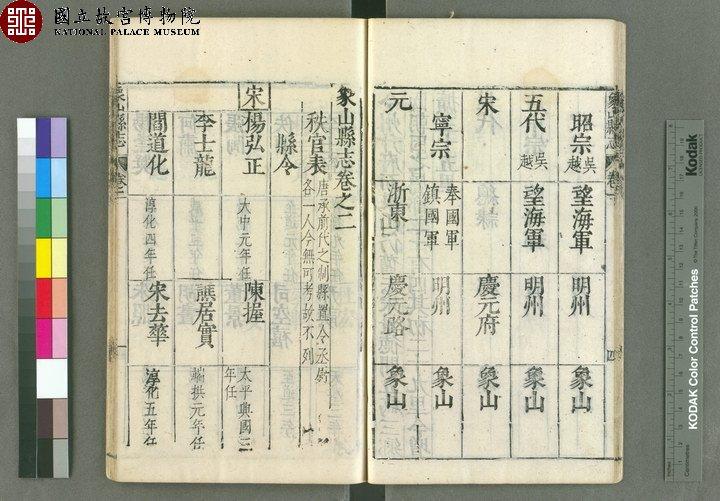 國立故宮博物院
NATIONAL PALACE MUSEUM
昭宗 吳越 望海軍 明州 象山
五代 吳越 望海軍 明州 象山
宋 慶元府 象山
寧宗 奉國軍 鎮國軍 明州 象山
元 浙東 慶元路 象山
象山縣志卷之二
秩官表 唐承前代之制縣置令丞尉各一人今無可考故不列
縣令
宋 楊弘正 大中元年任 陳握 太平興國三年任
李士龍 譙居實 端拱元年任
閻道化 淳化四年任 宋去華 淳化五年任
象山縣志 卷二 一
象山縣志 卷一
KODAK Color Control Patches
Kodak